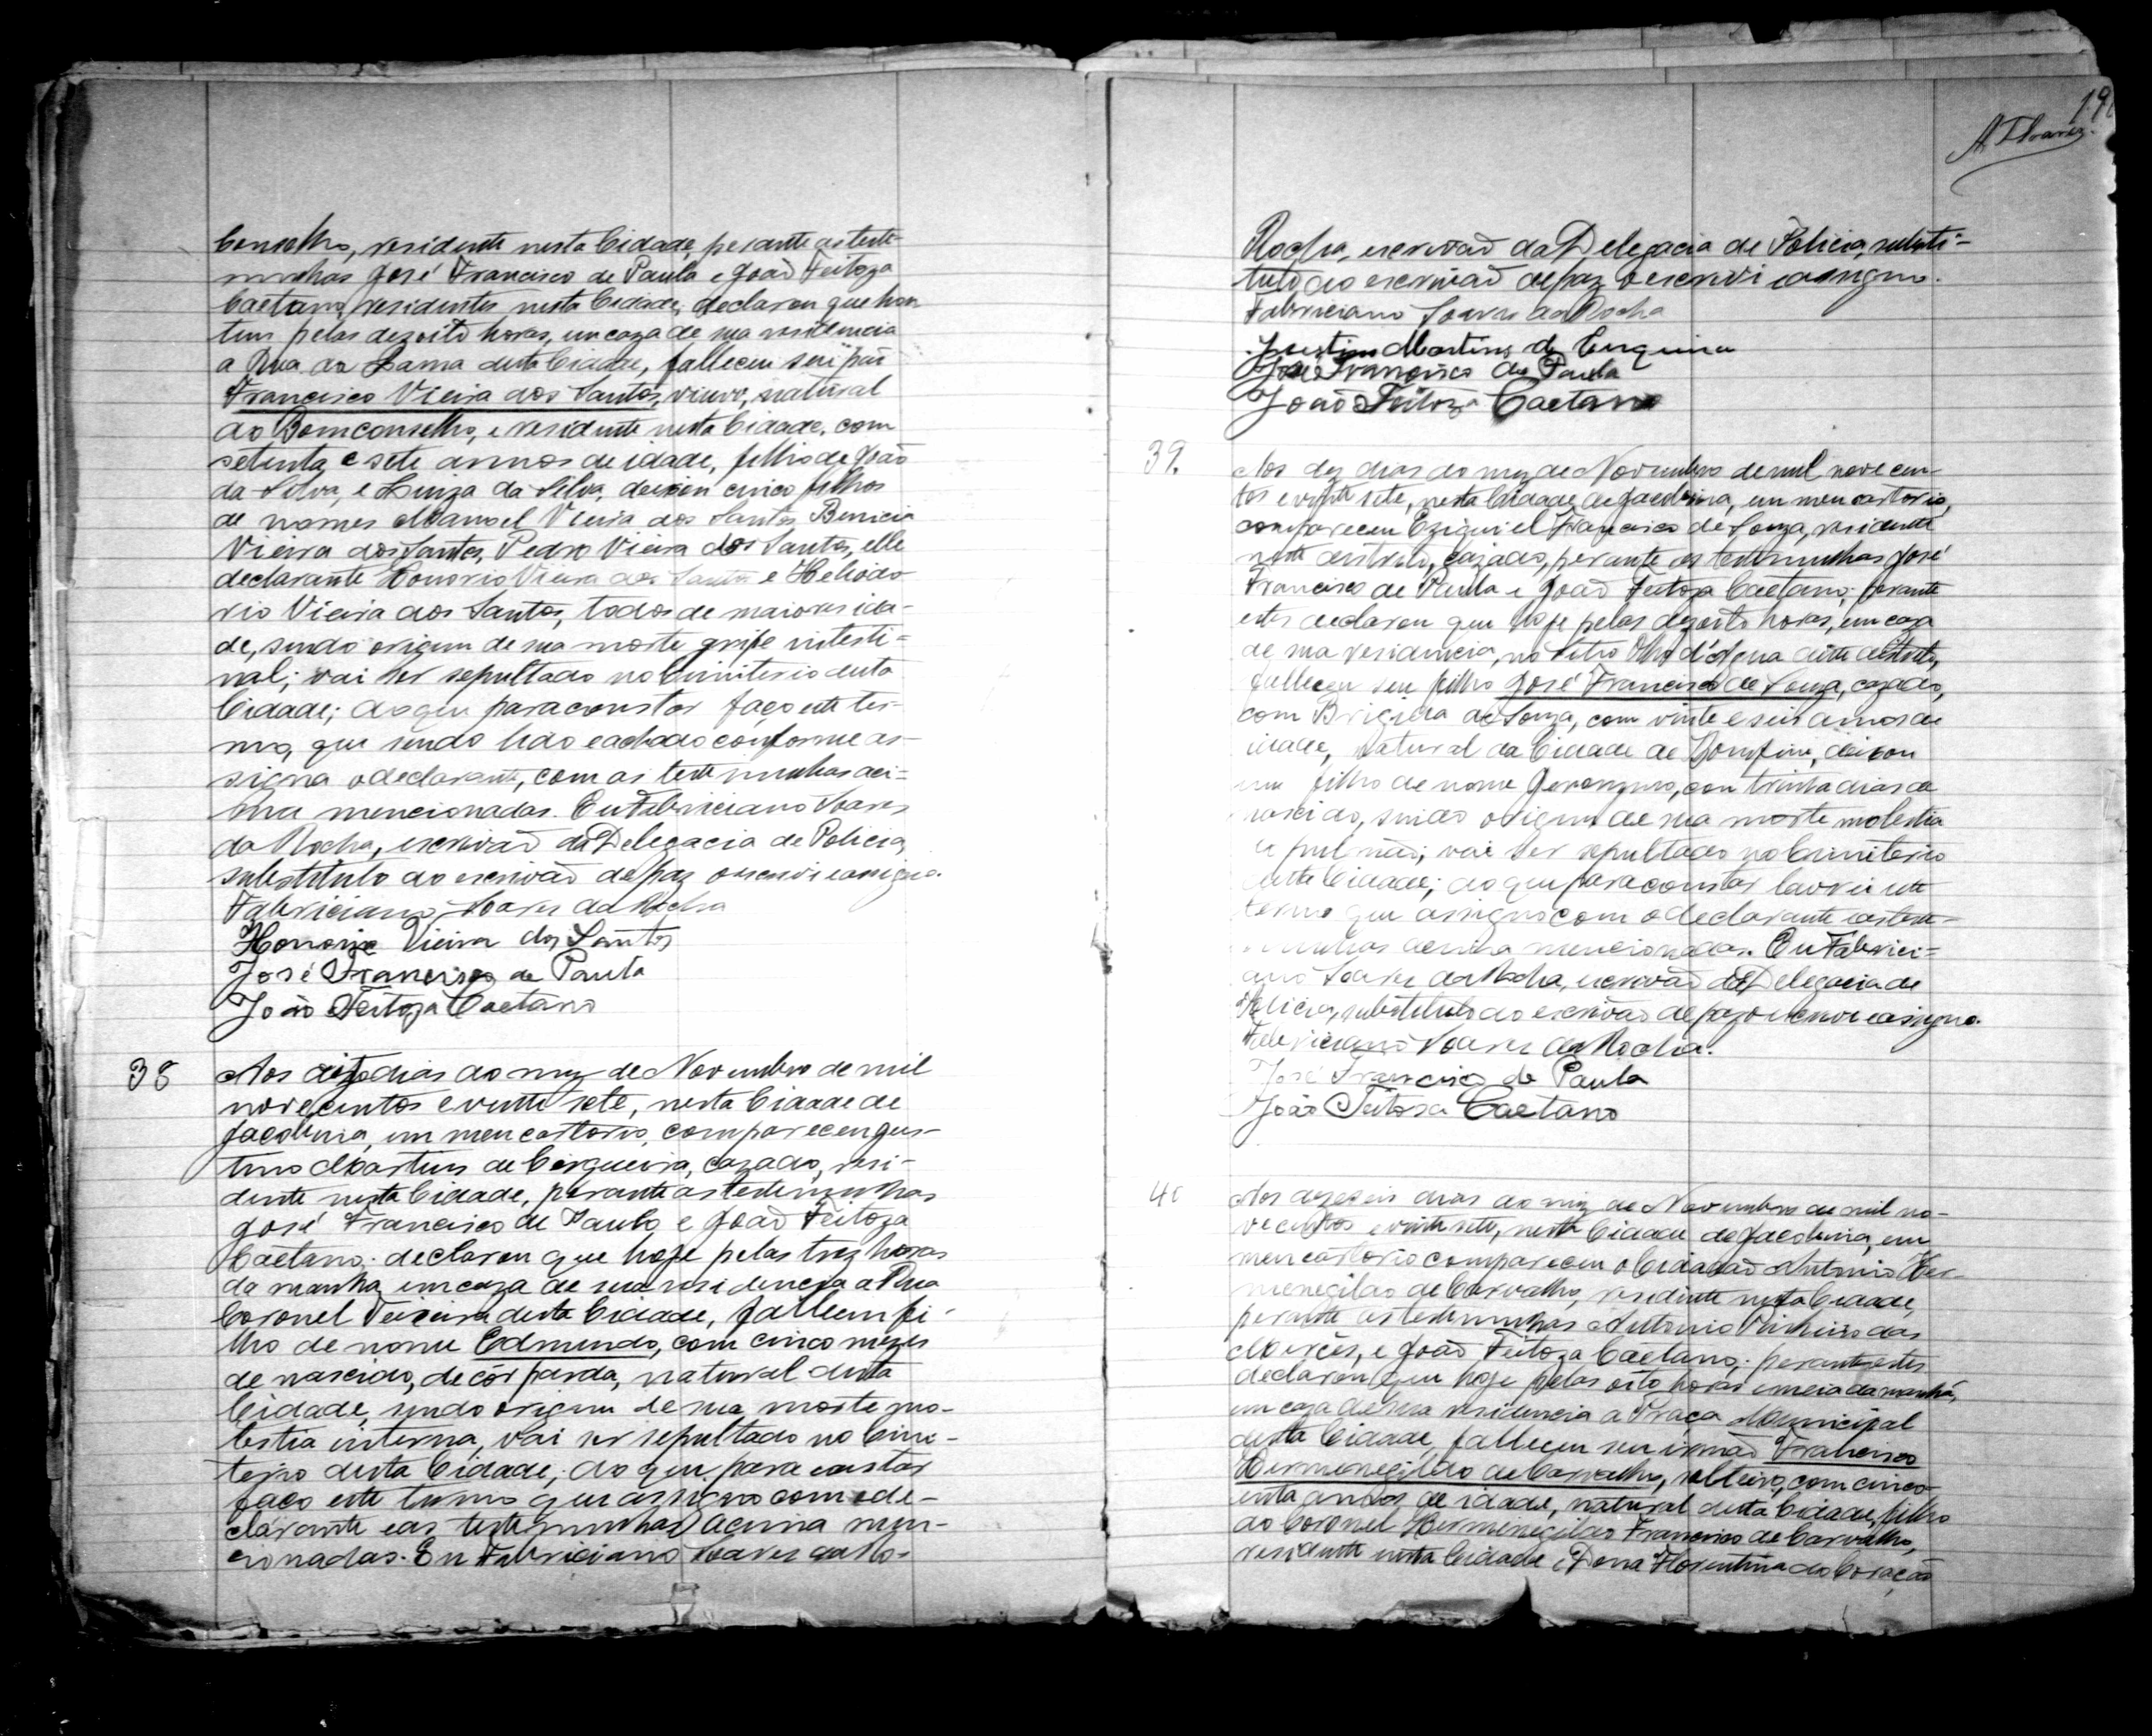 Conselho, residente nesta Cidade, perante as teste-
munhas José Francisco de Paula e João Feitoza
Caetano, residentes nesta Cidade, declarou que hon
tem pelas dezoito horas, em caza de sua residencia
a Rua da Lama desta Cidade, falleceu seu pai
Francisco Vieira dos Santos, viuvo, natural
do Bomconselho, e residente nesta Cidade, com
setenta e sete annos de idade, filho de João
da Silva, e Luiza da Silva, deixou cinco filhos
de nomes Manoel Vieira dos Santos, Benicia
Vieira dos Santos, Pedro Vieira dos Santos, elle
declarante Honorio Vieira dos Santos e Heliodo
rio Vieira dos Santos, todos de maiores ida-
de, sendo origem de sua morte gripe intesti=
nal; vai ser sepultado no Cimiterio desta
Cidade; do que para constar faço este ter-
mo, que sendo lido e achado conforme as-
signa o declarante, com as testemunhas aci=
ma mencionadas. Eu Fabriciano Soares
da Rocha, escrivaõ da Delegacia de Policia,
substituto do escrivaõ de paz o escrevi e assigno.
Fabriciano Soares da Rocha
Honorio Vieira dos Santos
José Francisco de Paula
João Feitoza Caetano
38 Aos oito dias do mez de Novembro de mil
novecentos e vinte sete, nesta Cidade de
Jacobina, em meu cartorio, compareceu Jus-
tino Martins de Cerqueira, cazado, resi-
dente nesta Cidade, perante as testemunhas
José Francisco de Paula, e João Feitoza
Caetano; declarou que hoje pelas trez horas
da manha, em caza de sua residencia a Rua
Coronel Teixeira desta Cidade, falleceu fi-
lho de nome Edmundo, com cinco mezes
de nascido, de côr parda, natural desta
Cidade, sendo origem de sua morte mo-
lestia interna, vai ser sepultado no Cimi-
terio desta Cidade; do que para constar
faço este termo que assigno com o de-
clarante e as testemunhas acima men-
cionadas. Eu Fabriciano Soares da Ro-
19
Rocha, escrivaõ da Delegacia de Policia, substi=
tuto do escrivaõ de paz o escrevi e assigno.
Fabriciano Soares da Rocha
Justino Martins de Cerqueira
José Francisco de Paula
João Feitoza Caetano
39. Aos dez dias do mez de Novembro de mil nove cen-
tos e vinte sete, nesta Cidade de Jacobina, em meu cartorio,
compareceu Eziquiel Francisco de Souza, residente
neste districto, cazado, perante as testemunhas José
Francisco de Paula e João Feitoza Caetano; perante
estes declarou que hoje pelas dezoito horas, em caza
de sua residencia, no Sitio Olho d'Agua deste districto,
falleceu seu filho José Francisco de Souza, cazado,
com Brigida de Souza, com vinte e seis annos de
idade, natural da Cidade de Bomfim, deixou
um filho de nome Geronymo, com trinta dias de
nascido, sendo origem de sua morte molestia
de pulmão; vai ser sepultado no Cimiterio
desta Cidade; do que para constar lavrei este
termo que assigno com o declarante e as teste-
munhas acima mencionadas. Eu Fabrici=
ano Soares da Rocha, escrivaõ da Delegacia de
Policia, substituto do escrivaõ de paz o escrevi e assigno.
Fabriciano Soares da Rocha.
José Francisco de Paula
João Feitosa Caetano
40 Aos dezeseis dias do mez de Novembro de mil no-
vecentos e vinte sete, nesta Cidade de Jacobina, em
meu cartorio compareceu o Cidadaõ Antonio Her-
menegildo de Carvalho, residente nesta Cidade,
perante as testemunhas Antonio Pinheiro das
Mercês, e João Feitoza Caetano; perante estes
declarou que hoje pelas oito horas e meia da manhã,
em caza de sua residencia a Praça Municipal
desta Cidade, falleceu seu irmaõ Francisco
Hermenegildo de Carvalho, solteiro, com cinco-
enta annos de idade, natural desta Cidade, filho
do Coronel Hermenegildo Francisco de Carvalho,
residente nesta Cidade e Dona Florentina do Coração